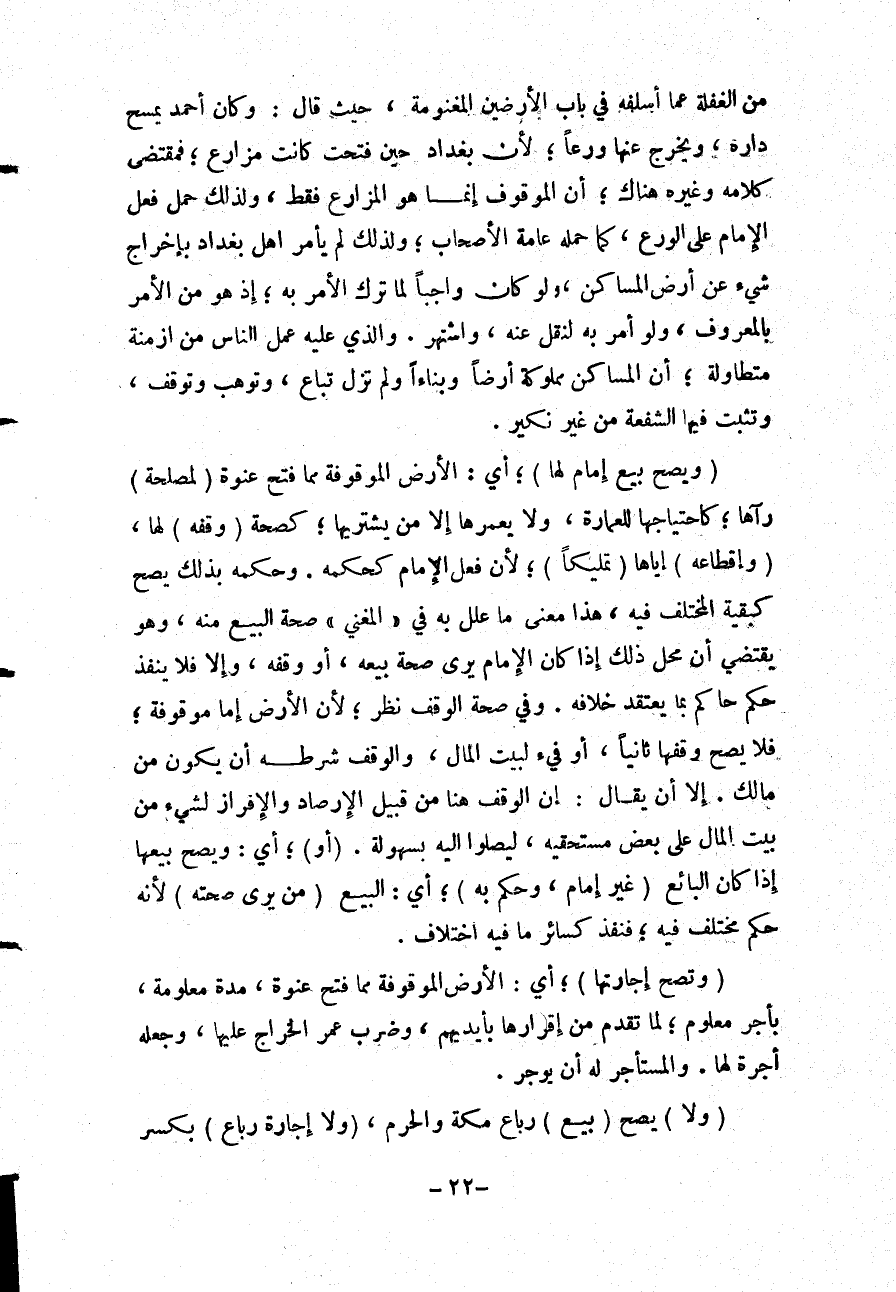 من الغفلة عما أسلفه في باب الأرضين المغنومة ، حيث قال : وكان أحمد يمسح
داره ؛ ويخرج عنها ورعاً ؛ لأن بغداد حين فتحت كانت مزارع ؛ فمقتضى
كلامه وغيره هناك ؛ أن الموقوف إنما هو المزارع فقط ، ولذلك حمل فعل
الإمام على الورع ، كما حمله عامة الأصحاب ؛ ولذلك لم يأمر اهل بغداد بإخراج
شيء عن أرض المساكن ، ولو كان واجباً لما ترك الأمر به ؛ إذ هو من الأمر
بالمعروف ، ولو أمر به لنقل عنه ، واشتهر . والذي عليه عمل الناس من ازمنة
متطاولة ؛ أن المساكن مملوكة أرضاً وبناءاً ولم تزل تباع ، وتوهب وتوقف ،
وتثبت فيها الشفعة من غير نكير .
( ويصح بيع إمام لها ) ؛ أي : الأرض الموقوفة مما فتح عنوة ( لمصلحة )
رآها ؛ كاحتياجها للعمارة ، ولا يعمرها إلا من يشتريها ؛ كصحة ( وقفه ) لها ،
( وإقطاعه ) إياها ( تمليكاً ) ؛ لأن فعل الإمام كحكمه . وحكمه بذلك يصح
كبقية المختلف فيه ، هذا معنى ما علل به في « المغني » صحة البيع منه ، وهو
يقتضي أن محل ذلك إذا كان الإمام يرى صحة بيعه ، أو وقفه ، وإلا فلا ينفذ
حكم حاكم بما يعتقد خلافه . وفي صحة الوقف نظر ؛ لأن الأرض إما موقوفة ؛
فلا يصح وقفها ثانياً ، أو فيء لبيت المال ، والوقف شرطه أن يكون من
مالك . إلا أن يقال : إن الوقف هنا من قبيل الإرصاد والإفراز لشيء من
بيت المال على بعض مستحقيه ، ليصلوا اليه بسهولة . (أو) ؛ أي : ويصح بيعها
إذا كان البائع ( غير إمام ، وحكم به ) ؛ أي : البيع ( من يرى صحته ) لأنه
حكم مختلف فيه ؛ فنفذ كسائر ما فيه اختلاف .
( وتصح إجارتها ) ؛ أي : الأرض الموقوفة مما فتح عنوة ، مدة معلومة ،
بأجر معلوم ؛ لما تقدم من إقرارها بأيديهم ، وضرب عمر الخراج عليها ، وجعله
أجرة لها . والمستأجر له أن يوجر .
( ولا ) يصح ( بيع ) رباع مكة والحرم ، (ولا إجارة رباع ) بكسر
-٢٢-